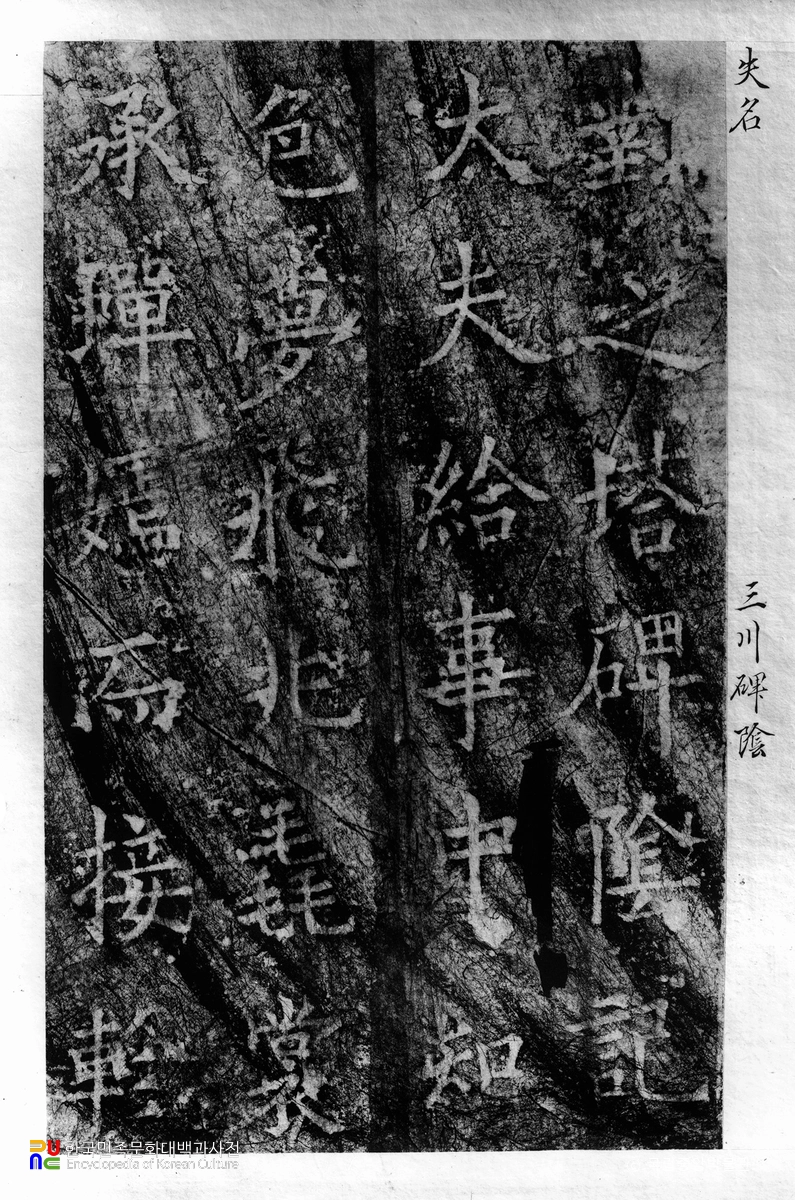 失名
三川碑陰
之塔碑陰記
大夫給事中知
色夢飛北毳裳
承蟬嫣而接軫
한국민족문화대백과사전
Encyclopedia of Korean Culture